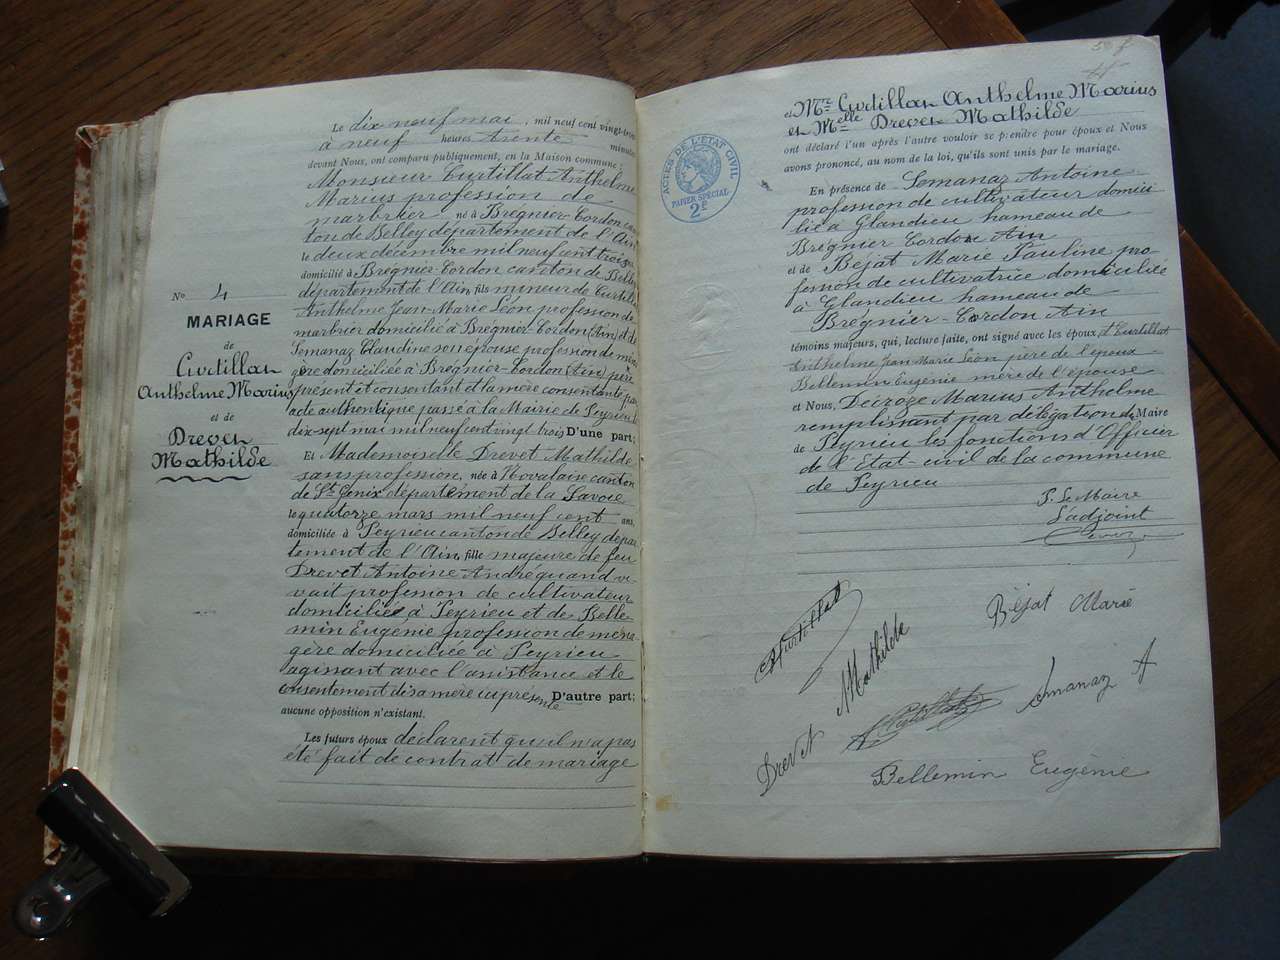 Le dix neuf mai, mil neuf cent vingt-trois
à neuf heures trente minutes
devant Nous, ont comparu publiquement, en la Maison commune :
Monsieur Curtillat Anthelme
Marius profession de
marbrier né à Bregnier-Cordon can
ton de Belley département de l'Ain
le deux décembre mil neuf cent trois
domicilié à Bregnier-Cordon canton de Belley
département de l'Ain, fils mineur de Curtillat
Anthelme Jean-Marie Léon profession de
marbrier domicilié à Bregnier-Cordon (Ain) et de
Semanaz Claudine son épouse profession de ména
gère domiciliée à Bregnier-Cordon (Ain) père
présent et consentant et la mère consentant par
acte authentique passé à la Mairie de Peyrieu le
dix-sept mai mil neuf cent vingt trois D'une part;
Et Mademoiselle Drevet Mathilde
sans profession, née à Novalaise canton
de St Genix département de la Savoie
le quatorze mars mil neuf cent ans,
domiciliée à Peyrieu canton de Belley dépar
tement de l'Ain, fille majeure de feu
Drevet Antoine André quand vi-
vait profession de cultivateur
domicilié à Peyrieu et de Belle
min Eugénie profession de ména
gère domiciliée à Peyrieu
agissant avec l'assistance et le
consentement de sa mère ici présente D'autre part;
aucune opposition n'existant.
Les futurs époux déclarent qu'il n'a pas
été fait de contrat de mariage
No 4
MARIAGE
de
Curtillat
Anthelme Marius
et de
Drevet
Mathilde
et Mr Curtillat Anthelme Marius
et Melle Drevet Mathilde
ont déclaré l'un après l'autre vouloir se prendre pour époux et Nous
avons prononcé, au nom de la loi, qu'ils sont unis par le mariage.
En présence de Semanaz Antoine
profession de cultivateur domici
lié à Glandieu hameau de
Bregnier Cordon Ain
et de Béjat Marie Pauline pro
fession de cultivatrice domiciliée
à Glandieu hameau de
Bregnier-Cordon Ain
témoins majeurs, qui, lecture faite, ont signé avec les époux, et Curtillat
Anthelme Jean Marie Léon père de l'époux
Bellemin Eugénie mère de l'épouse
et Nous, Décroze Marius Anthelme
remplissant par délégation du Maire
de Peyrieu les fonctions d'Officier
de l'Etat-civil de la commune
de Peyrieu
P. Le Maire
L'adjoint
ACTES DE L'ÉTAT CIVIL
PAPIER SPÉCIAL
2F
Curtillat
Drevet Mathilde
Béjat Marie
Semanaz A
Bellemin Eugénie